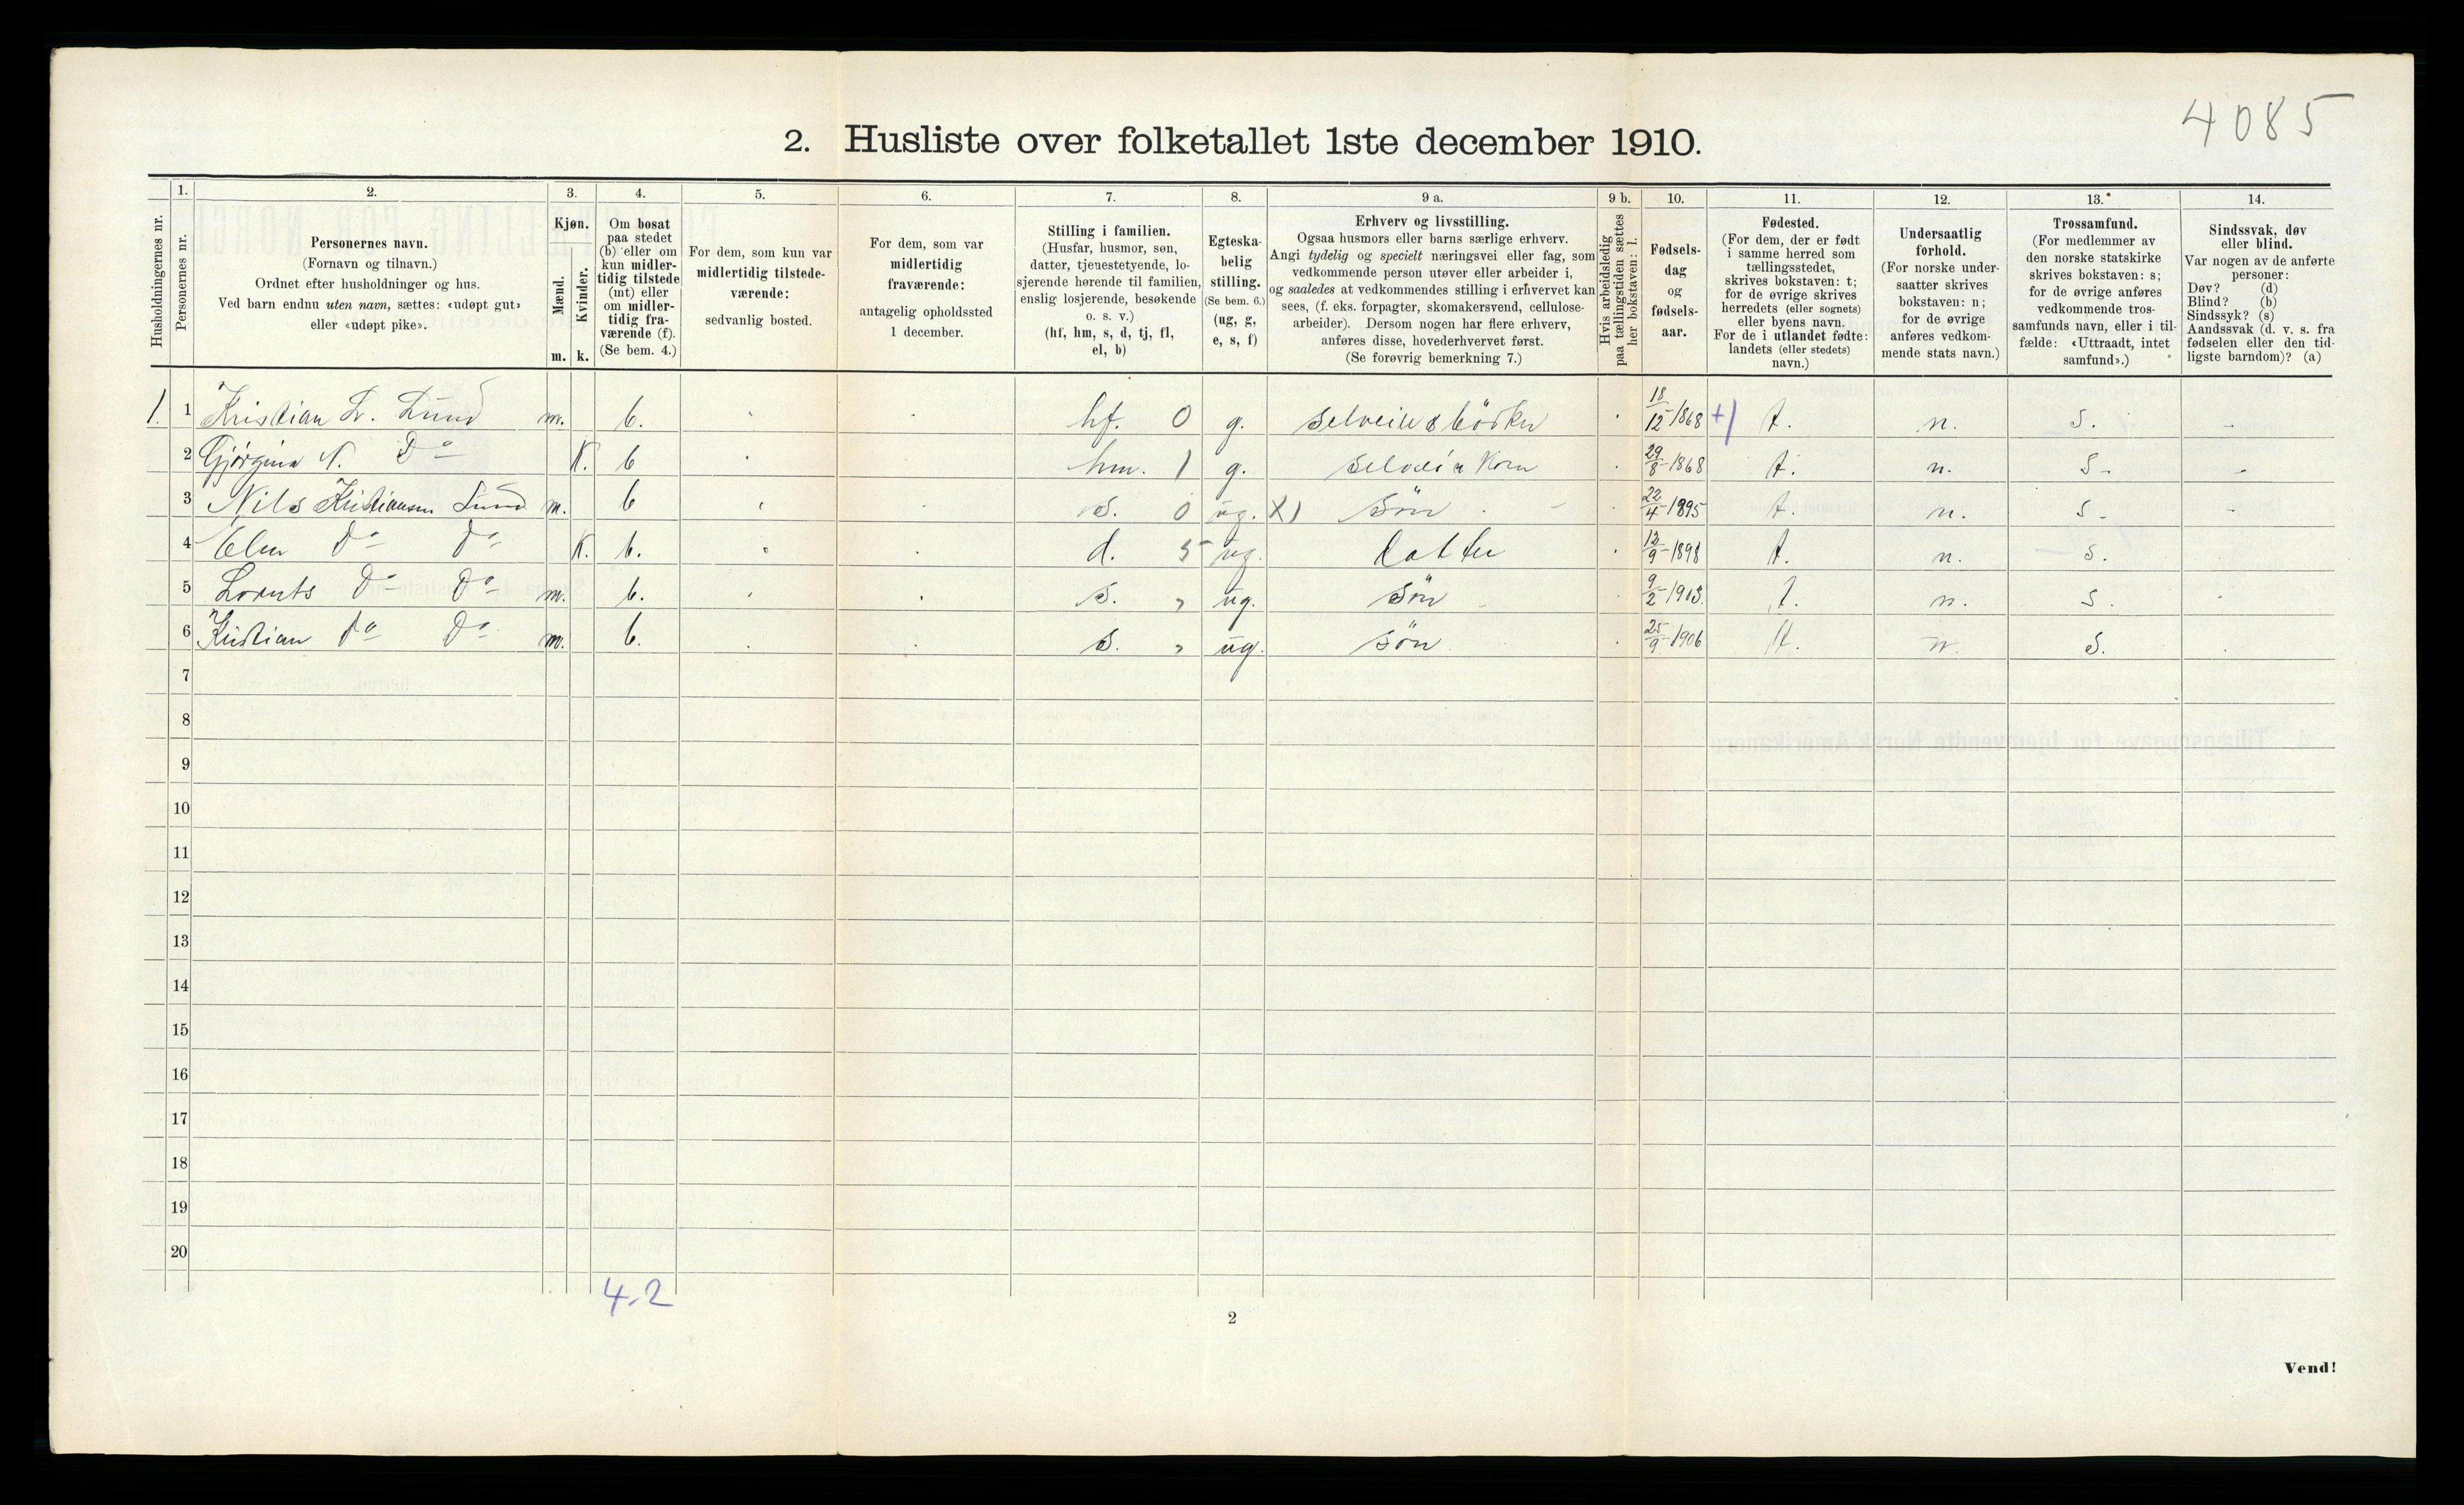 4085
2. Husliste over folketallet 1ste december 1910.
Husholdningernes nr.
1.
Personernes nr.
2.
Personernes navn.
(Fornavn og tilnavn.)
Ordnet efter husholdninger og hus.
Ved barn endnu uten navn, sættes: «udøpt gut»
eller «udøpt pike».
3.
Kjøn.
Mænd.
Kvinder.
m. k.
4.
Om bosat
paa stedet
(b) eller om
kun midler-
tidig tilstede
(mt) eller
om midler-
tidig fra-
værende (f).
(Se bem. 4.)
5.
For dem, som kun var
midlertidig tilstede-
værende:
sedvanlig bosted.
6.
For dem, som var
midlertidig
fraværende:
antagelig opholdssted
1 december.
7.
Stilling i familien.
(Husfar, husmor, søn,
datter, tjenestetyende, lo-
sjerende hørende til familien,
enslig losjerende, besøkende
o. s. v.)
(hf, hm, s, d, tj, fl,
el, b)
8.
Egteska-
belig
stilling.
(Se bem. 6.)
(ug, g,
e, s, f)
9 a.
Erhverv og livsstilling.
Ogsaa husmors eller barns særlige erhverv.
Angi tydelig og specielt næringsvei eller fag, som
vedkommende person utøver eller arbeider i,
og saaledes at vedkommendes stilling i erhvervet kan
sees, (f. eks. forpagter, skomakersvend, cellulose-
arbeider). Dersom nogen har flere erhverv,
anføres disse, hovederhvervet først.
(Se forøvrig bemerkning 7.)
9 b.
Hvis arbeidsledig
paa tællingstiden sættes
her bokstaven: l.
10.
Fødsels-
dag
og
fødsels-
aar.
11.
Fødested.
(For dem, der er født
i samme herred som
tællingsstedet,
skrives bokstaven: t;
for de øvrige skrives
herredets (eller sognets)
eller byens navn.
For de i utlandet fødte:
landets (eller stedets)
navn.)
12.
Undersaatlig
forhold.
(For norske under-
saatter skrives
bokstaven: n;
for de øvrige
anføres vedkom-
mende stats navn.)
13.
Trossamfund.
(For medlemmer av
den norske statskirke
skrives bokstaven: s;
for de øvrige anføres
vedkommende tros-
samfunds navn, eller i til-
fælde: «Uttraadt, intet
samfund».)
14.
Sindssvak, døv
eller blind.
Var nogen av de anførte
personer:
Døv? (d)
Blind? (b)
Sindssyk? (s)
Aandssvak (d. v. s. fra
fødselen eller den tid-
ligste barndom)? (a)
1. 1 Kristian L. Lund m. b. hf. 0 g. 18/12-1868 +) t. n. s.
2 Gjørgina N. Do K. b hm. 1 g. 29/8-1868 t. n. s.
3 Nils Kristiansen Lund m. b s. 0 ug. X) Søn 22/4-1895 t. n. s.
4 Do Do K. b. d. 5 ug. datter 13/9-1898 t. n. s.
5 Lornts Do Do m. b. s. " ug. Søn 9/2-1903 t. n. s.
6 Kristian do Do m. b. s. " ug. søn 25/9-1906 t. n. s.
7
8
9
10
11
12
13
14
15
16
17
18
19
20
4-2
2
Vend!